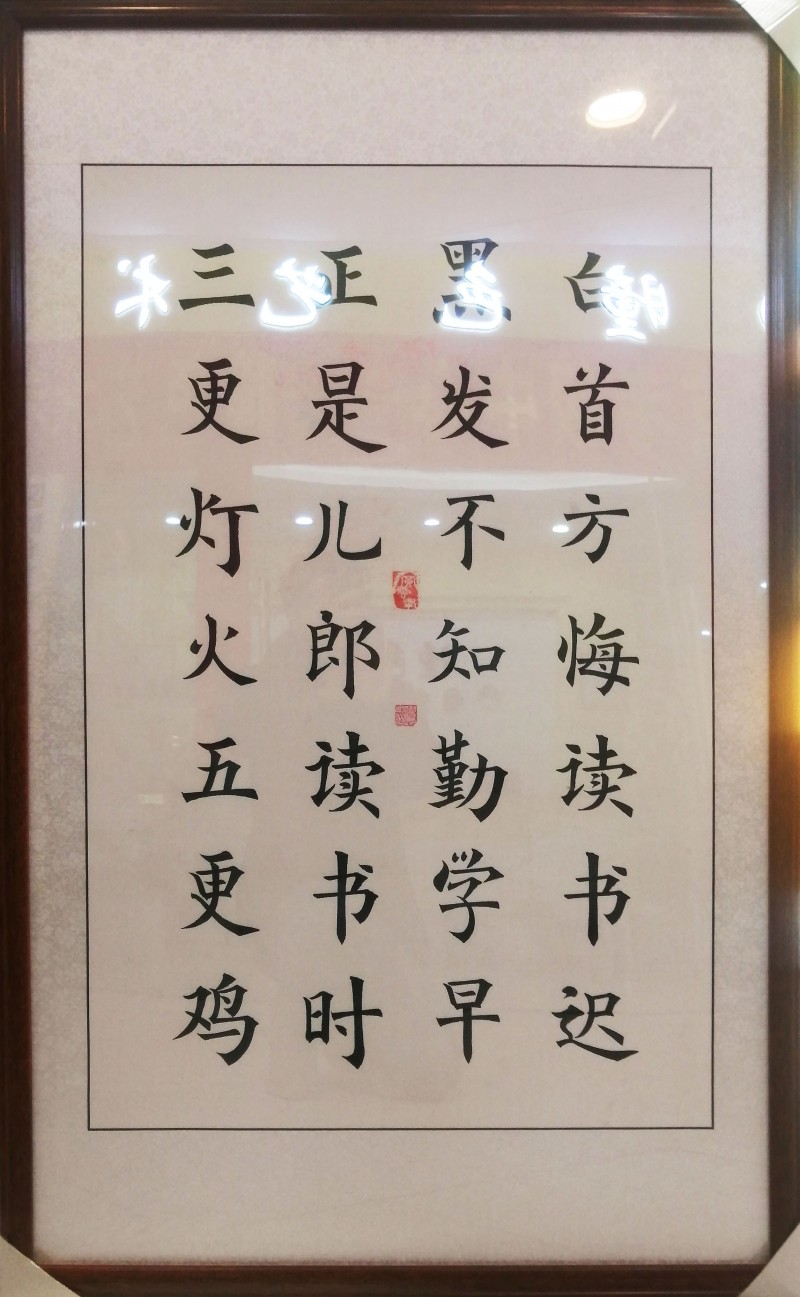 三更灯火五更鸡
正是儿郎读书时
黑发不知勤学早
白首方悔读书迟